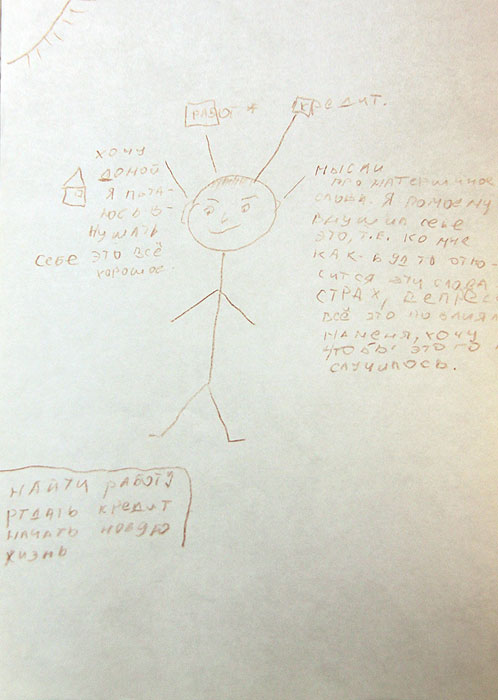 РАБОТ
кредит.
хочу
домой
я пыта-
юсь в-
нушать
себе это всё
хорошое.
мысли
про матершиное
слова. Я помоему
внушил себе
это, т.е. ко мне
как будто отно-
сится эти слова
СТРАХ, ДЕПРЕС
всё это повлиял
на меня, хочу
чтобы это
случилось.
НАЙТИ работу
отдать кредит
начать новую
жизнь